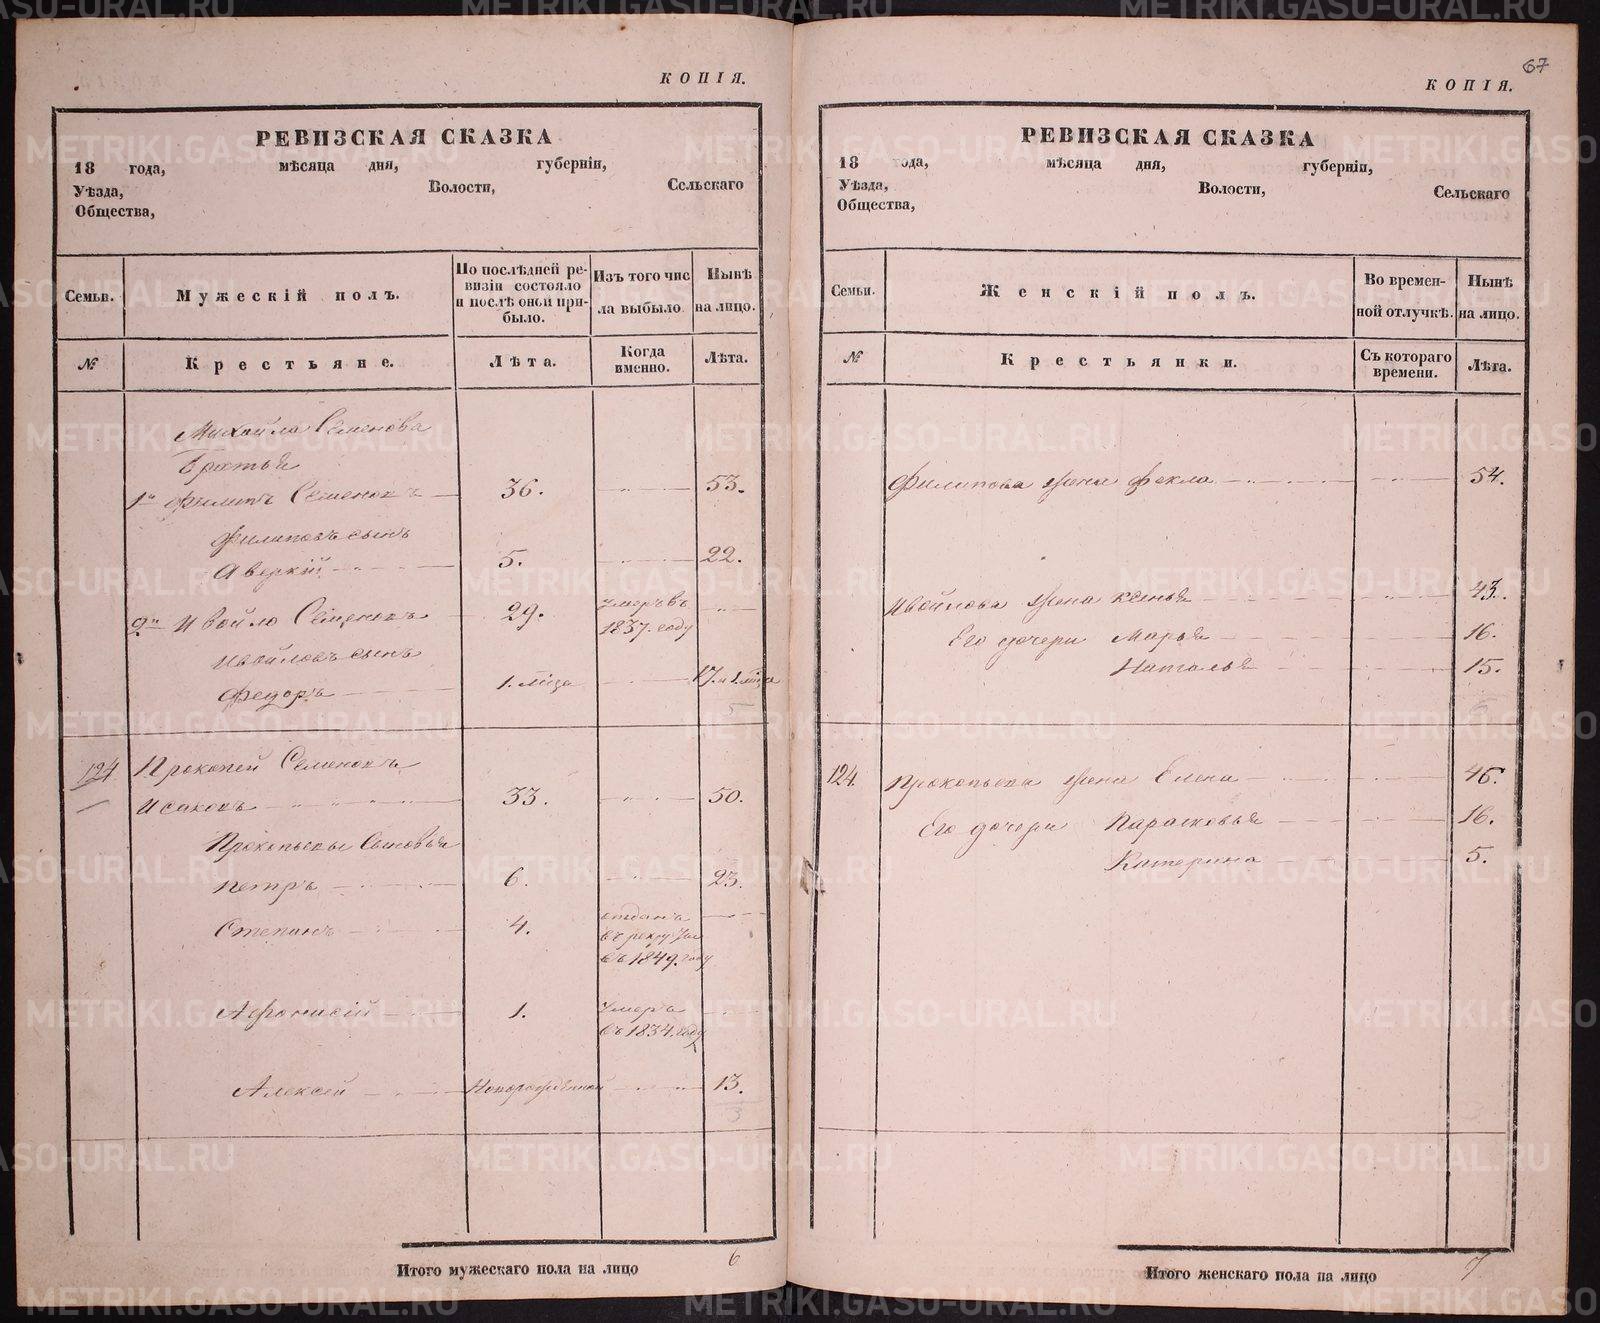 КОПІЯ.
РЕВИЗСКАЯ СКАЗКА
18 года, мѣсяца дня, губерніи,
Уѣзда, Волости, Сельскаго
Общества,
Семьи.
Мужескій полъ.
По послѣдней ре-
визіи состояло
и послѣ оной при-
было.
Изъ того чис
ла выбыло
Нынѣ
на лицо.
№
Крестьяне.
Лѣта.
Когда
именно.
Лѣта.
Михайла Семенова
братья
1й Филипъ Семеновъ 36. 53.
Филиповъ сынъ
Аверкій 5. 22.
2й Ивойло Семеновъ 29. умеръ въ
1837. году
Ивойловъ сынъ
Федоръ 1. мѣ͏ца 17. и 1. мѣца
5
124 Прокопей Семеновъ
Исаковъ 33. 50.
Прокопьевы сыновья
Петръ 6. 23.
Степанъ 4. отданъ
въ рекруты
въ 1849. году
Афонасій 1. умеръ
въ 1834. году
Алексей Новорожденной 13.
3
Итого мужескаго пола на лицо 6
67
КОПІЯ.
РЕВИЗСКАЯ СКАЗКА
18 года, мѣсяца дня, губерніи,
Уѣзда, Волости, Сельскаго
Общества,
Семьи.
Женскій полъ.
Во времен-
ной отлучкѣ.
Нынѣ
на лицо.
№
Крестьянки.
Съ котораго
времени.
Лѣта.
Филипова жена Фекла 54.
Ивойлова жена Ксенья 43.
Его дочери Марья 16.
Наталья 15.
124. Прокопьева жена Елена 46.
Его дочери Парасковья 16.
Катерина 5.
3
Итого женскаго пола на лицо 7
METRIKI.GASO-URAL.RU